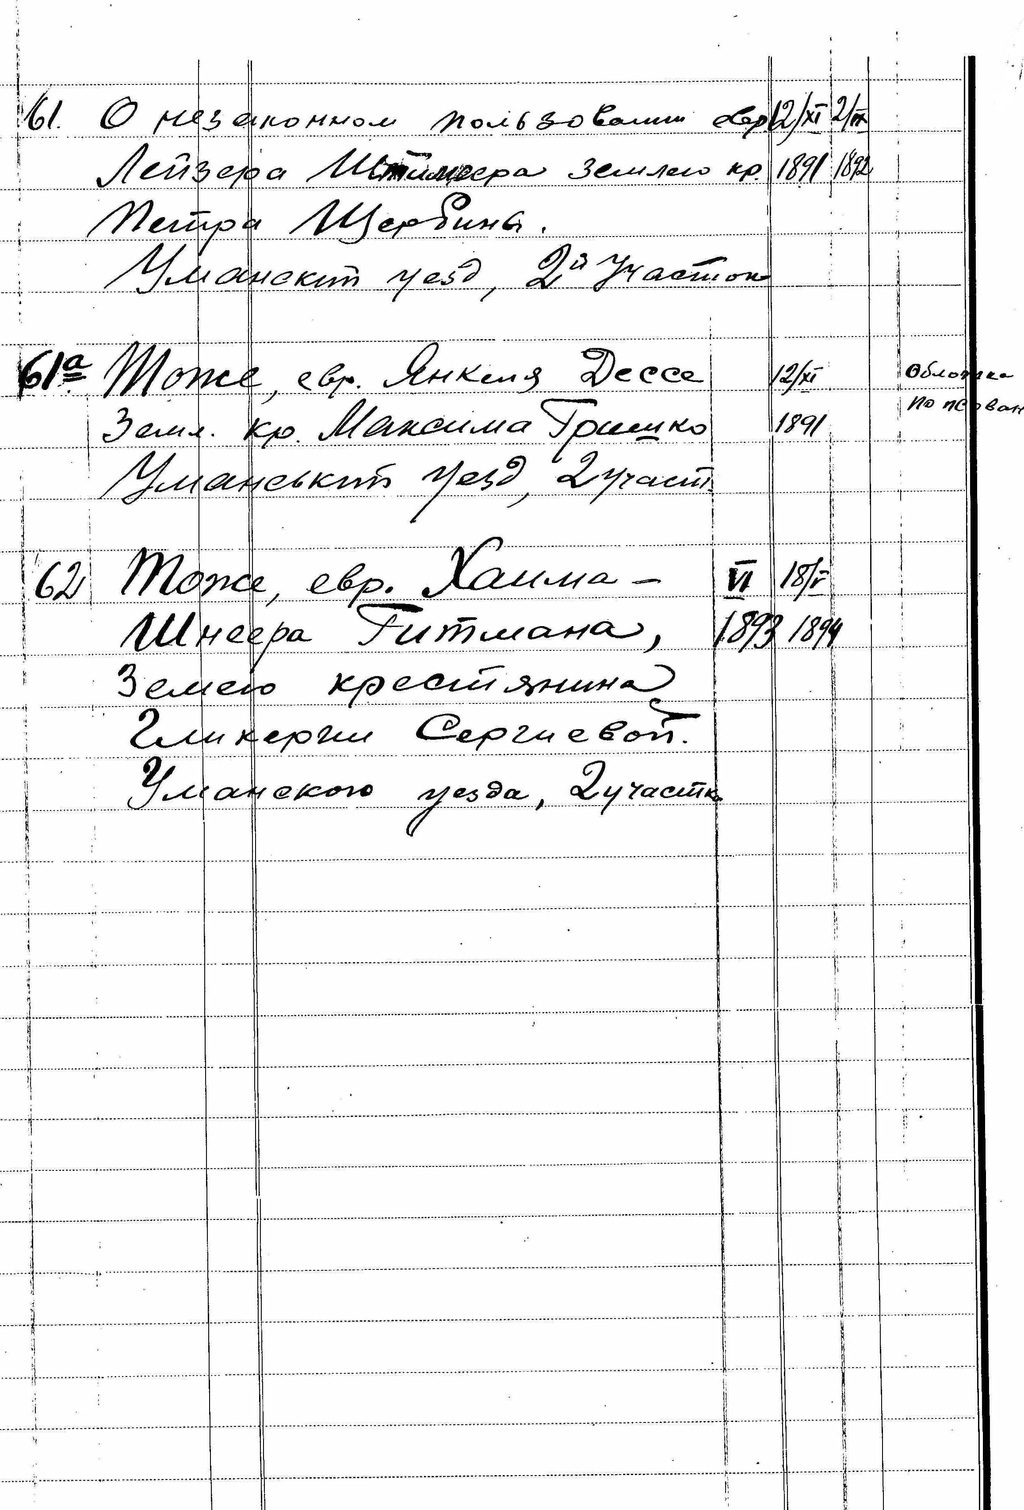 61. О незаконном пользовании евр 12/XI 2/IX
Лейзера землею кр. 1891 1892
Петра Щербины.
Уманский уезд, 2й Участок
61а Тоже, евр. Янкеля Дессе 12/XI Обложка
Земл. кр. Максима Гришко 1891 порван
Уманський уезд, 2 участ.
62 Тоже, евр. Хаима - VI 18/V
Шнеера Гитмана, 1893 1894
Землею крестянина
Гликерии Сергиевой.
Уманского уезда, 2 участк